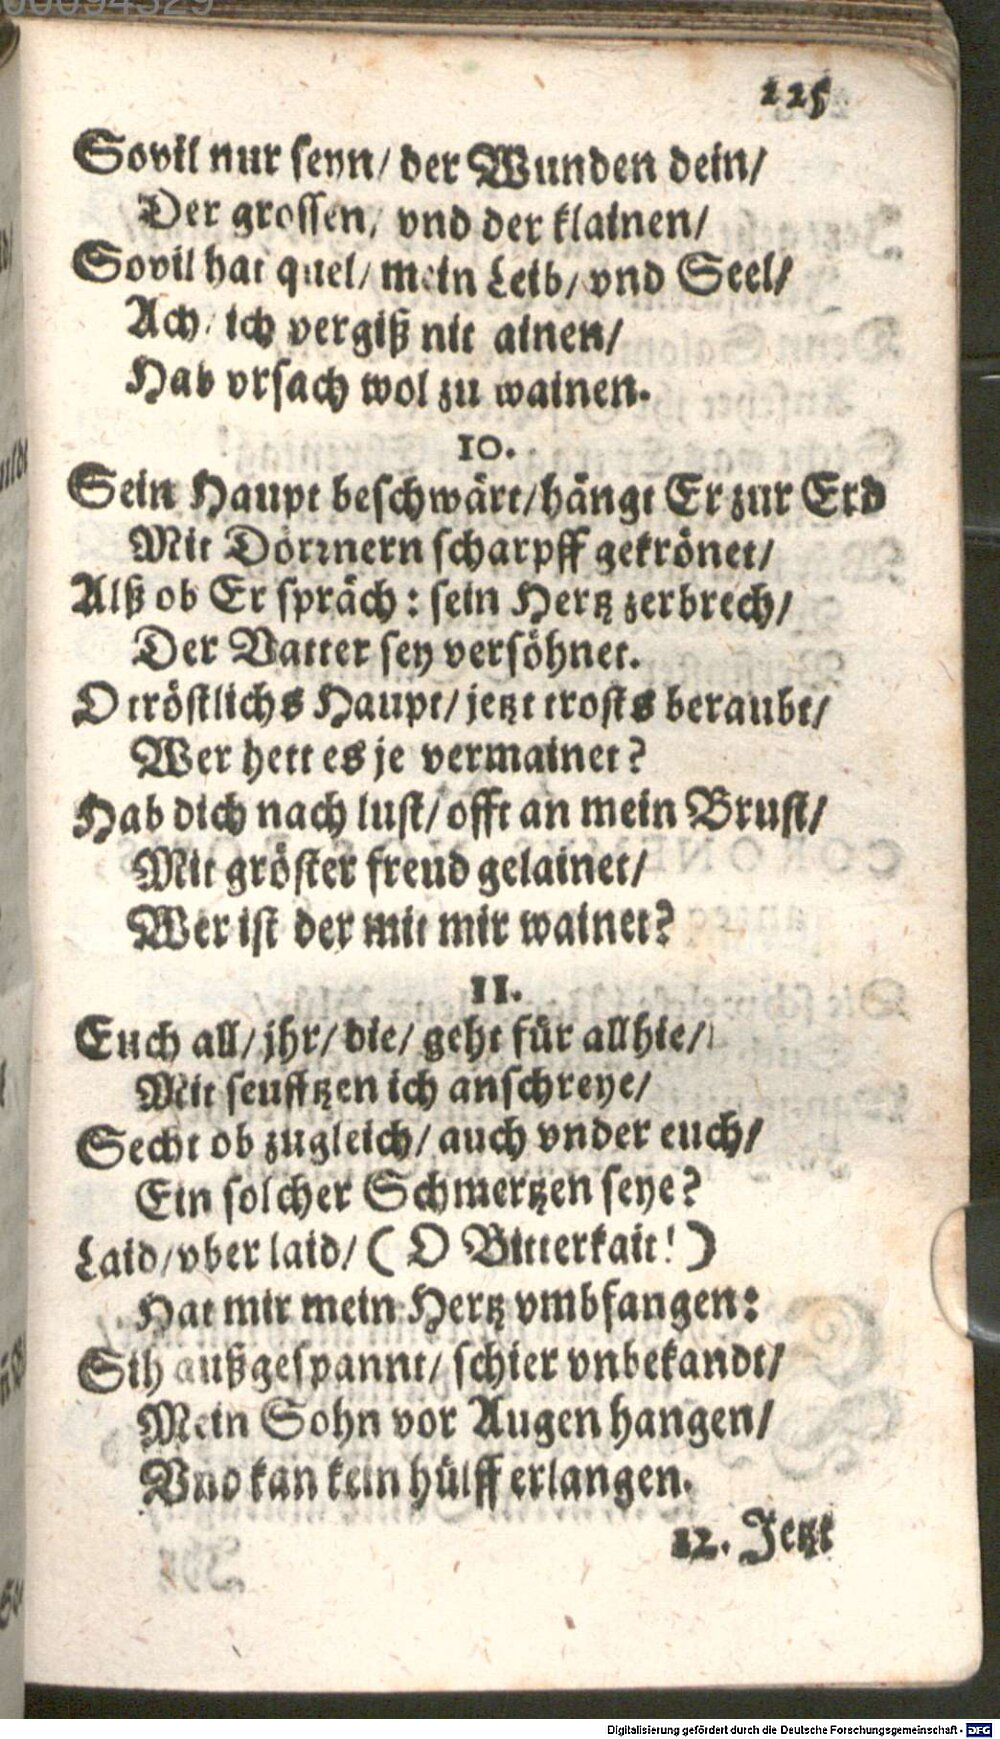 225
Sovil nur seyn/ der Wunden dein/
Der grossen, vnd der klainen/
Sovil hat quel/ mein Leib/ vnd Seel/
Ach/ ich vergiß nit ainen/
Hab vrsach wol zu wainen.
10.
Sein Haupt beschwärt/hängt Er zur Erd
Mit Dörrnern scharpff gekrönet/
Alß ob Er spräch: sein Hertz zerbrech/
Der Vatter sey versöhnet.
O tröstlichs Haupt/ jetzt trosts beraubt/
Wer hett es je vermainet?
Hab dich nach lust/ offt an mein Brust/
Mit gröster freud gelainet/
Wer ist der mit mir wainet?
11.
Euch all/ jhr/ die/ geht für allhie/
Mit seufftzen ich anschreye/
Secht ob zugleich/ auch vnder euch/
Ein solcher Schmertzen seye?
Laid/vber laid/ ( O Bitterkait! )
Hat mir mein Hertz vmbfangen:
Sih außgespannt/ schier vnbekandt/
Mein Sohn vor Augen hangen/
Vnd kan kein hülff erlangen.
12. Jetzt
Digitalisierung gefördert durch die Deutsche Forschungsgemeinschaft - DFG